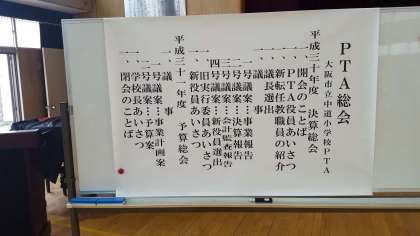 PTA総会
大阪市立中道小学校PTA
平成三十年度 決算総会
一、開会のことば
一、PTA役員あいさつ
一、新転任教職員の紹介
一、議長選出
一、議事
一号議案…事業報告
二号議案…決算報告
三号議案…会計監査報告
四号議案…新役員選出
一、旧実行委員あいさつ
一、新役員あいさつ
平成三十一年度 予算総会
一、議事
一号議案…事業計画
二号議案…予算案
一、学校長あいさつ
一、閉会のことば